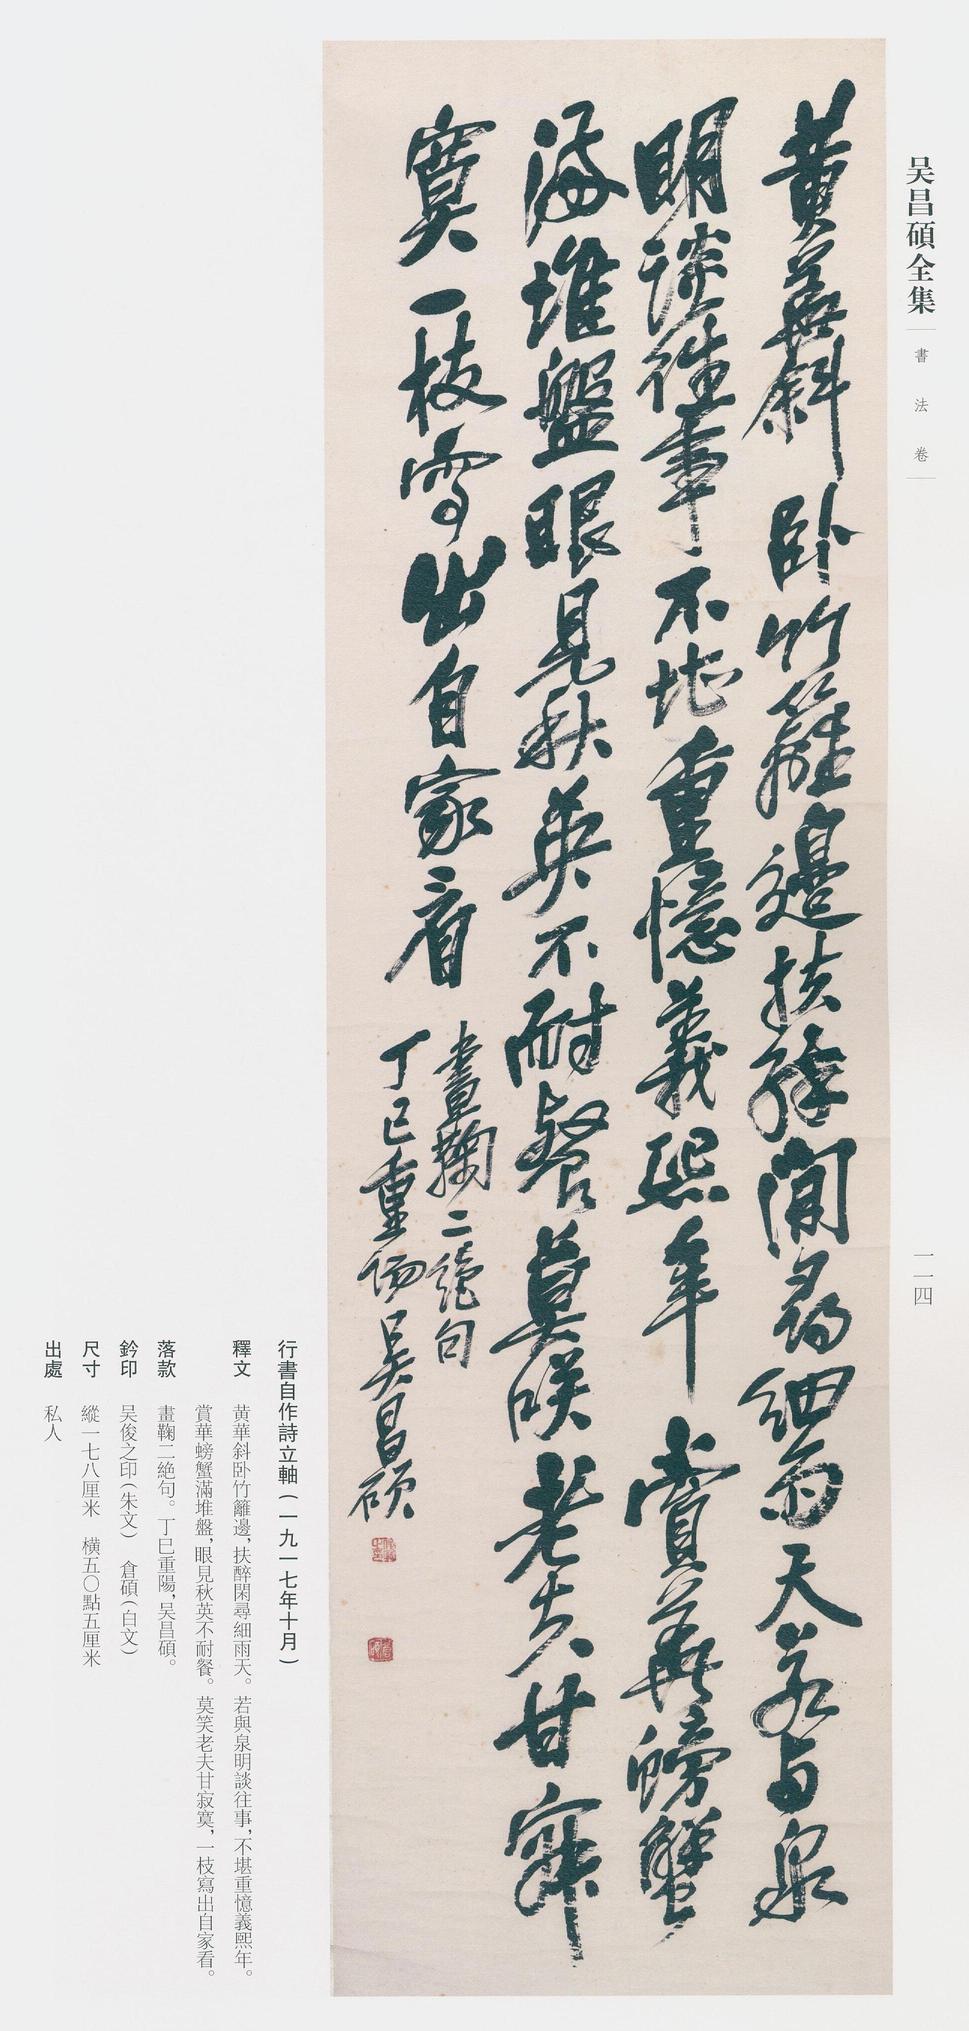 吴昌碩全集
書法卷
一一四
黄華斜卧竹籬邊扶醉閒尋細雨天若與泉
明談往事不堪重憶義熙年賞華螃蟹
滿堆盤眼見秋英不耐餐莫笑老夫甘寂
寞一枝寫出自家看
畫鞠二絶句
丁巳重陽吴昌碩
行書自作詩立軸(一九一七年十月)
釋文 黄華斜卧竹籬邊,扶醉閑尋細雨天。若與泉明談往事,不堪重憶義熙年。
賞華螃蟹滿堆盤,眼見秋英不耐餐。莫笑老夫甘寂寞,一枝寫出自家看。
落款 畫鞠二絶句。丁巳重陽,吴昌碩。
鈐印 吴俊之印(朱文) 倉碩(白文)
尺寸 縱一七八厘米 横五〇點五厘米
出處 私人